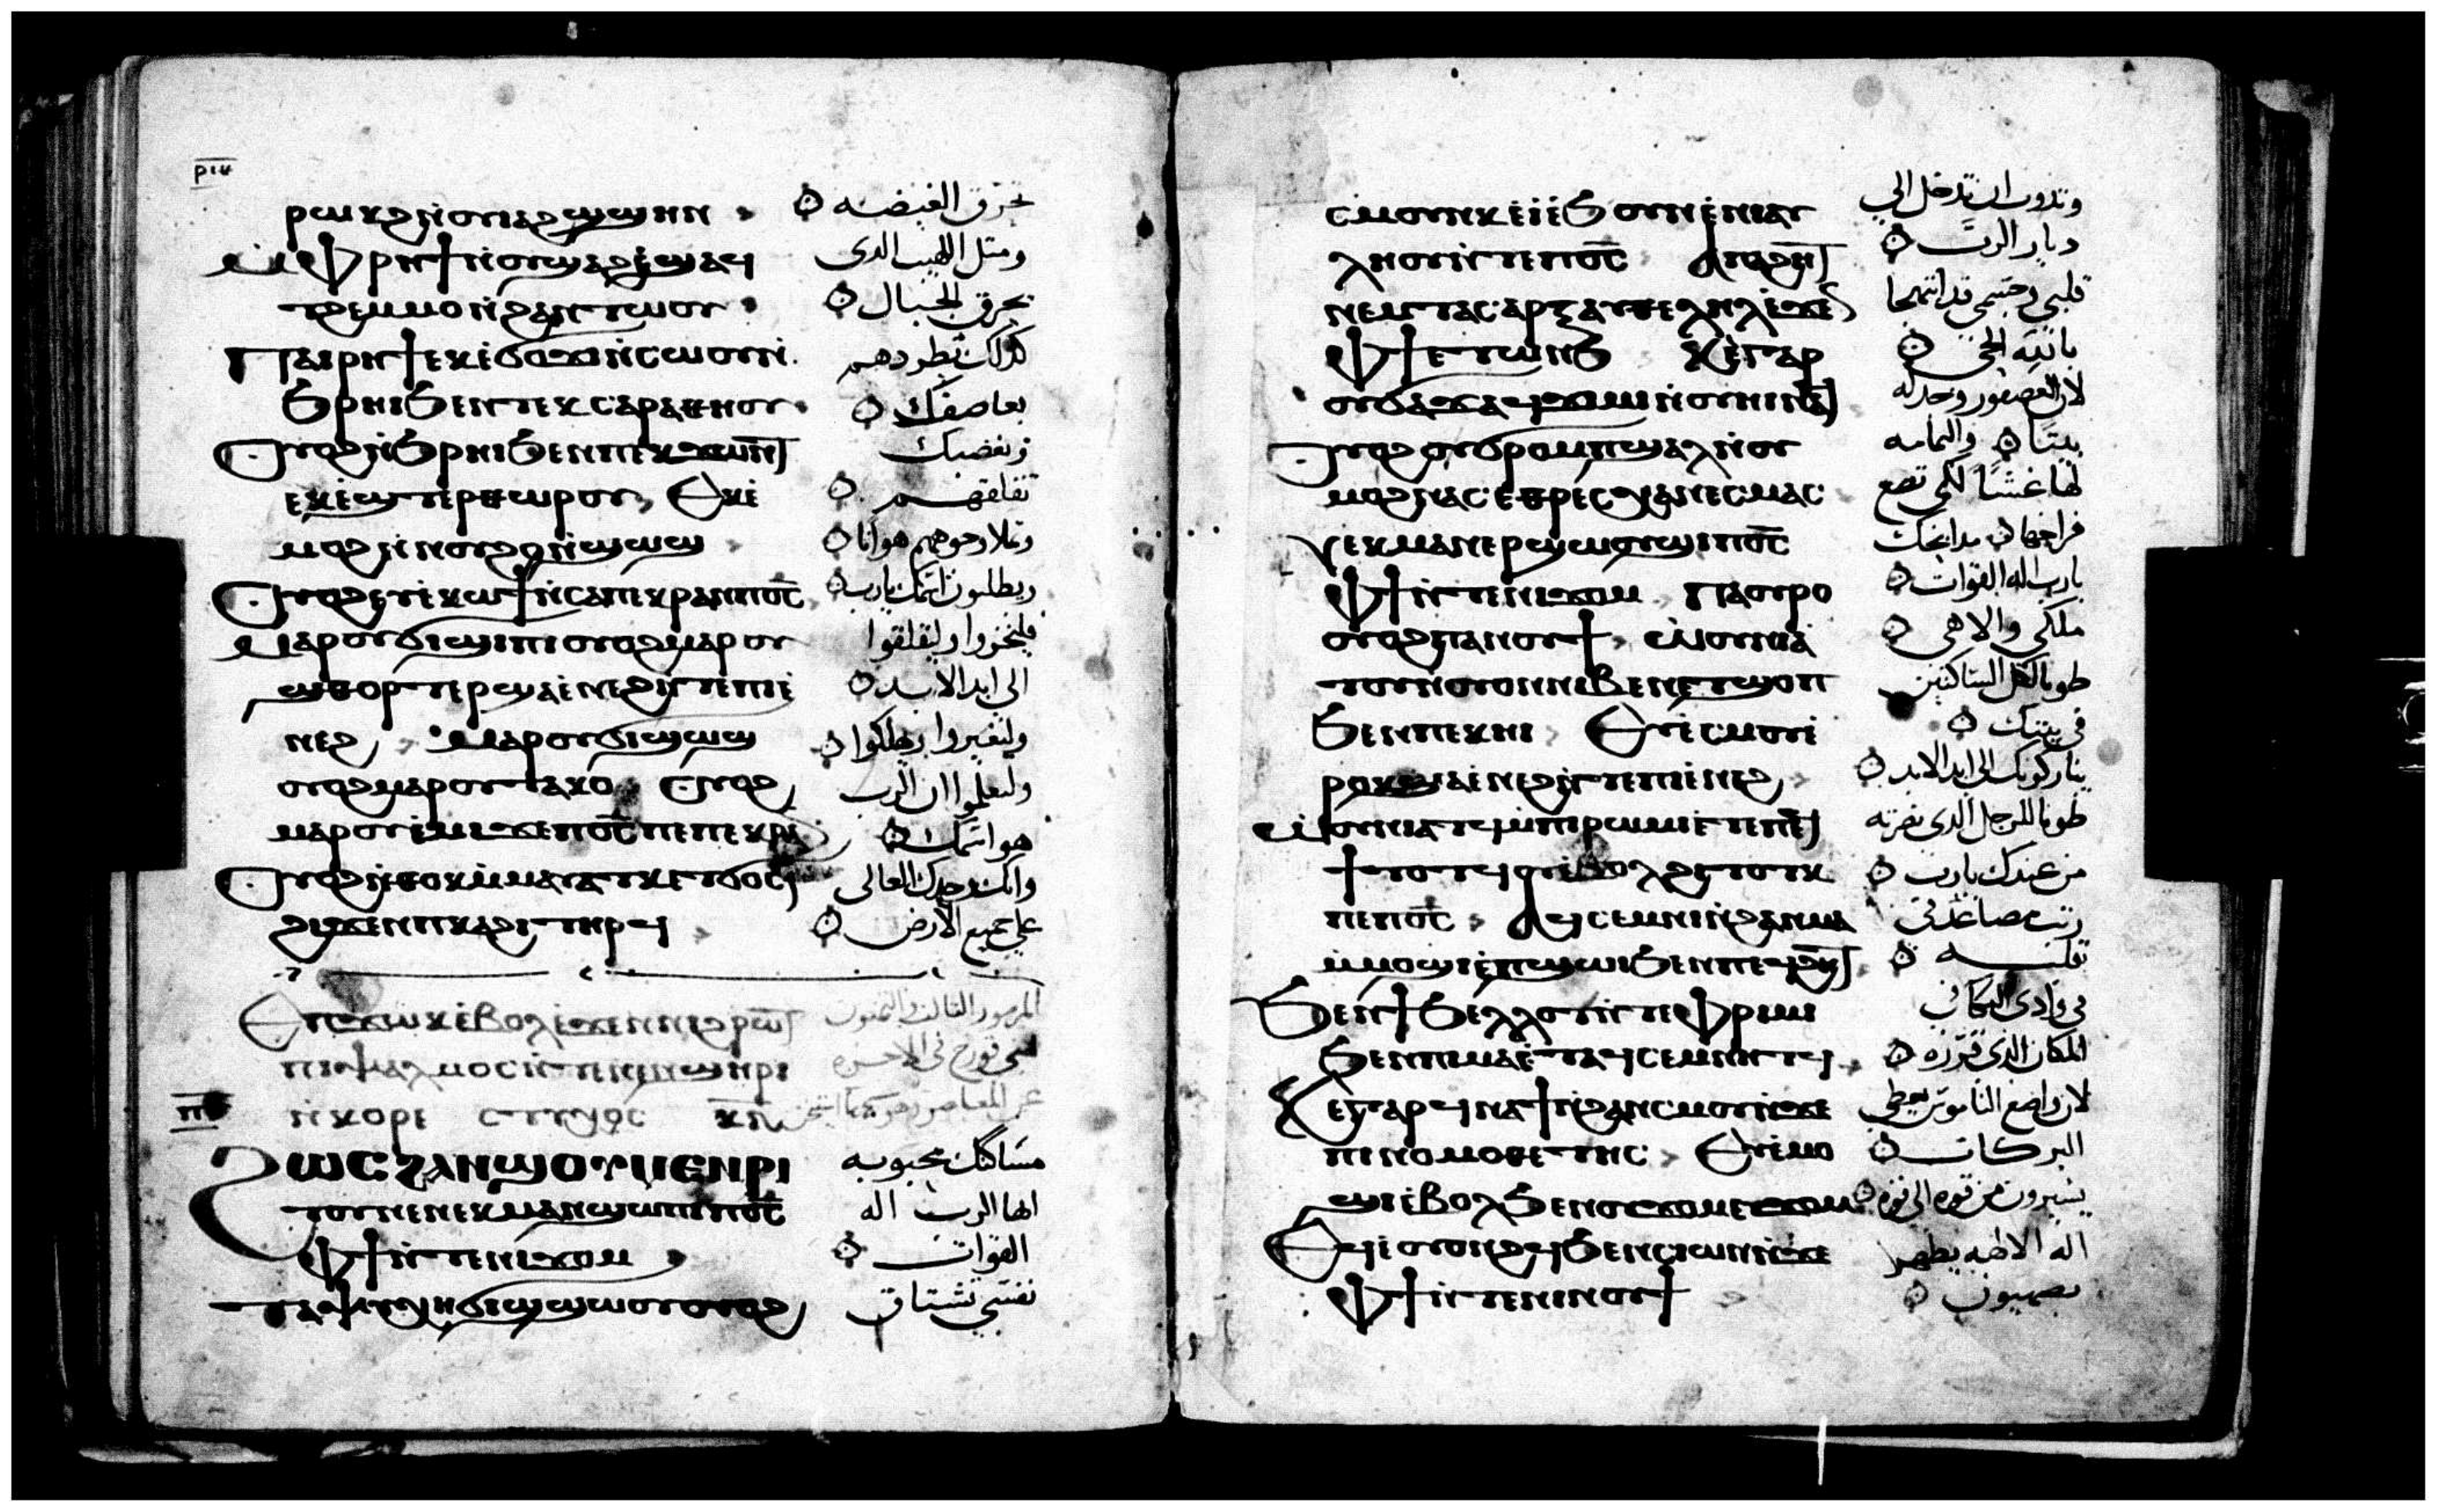 ⲣⲱⲕϩ ⲛⲟⲩⲓⲁϩϣϣⲏⲛ
ⲙ̀ⲫⲣⲏϯ ⲛⲟⲩϣⲁϩ ⲉϣⲁϥ
ⲑⲉⲙⲙⲟ ⲛ̀ϩⲁⲛⲧⲱⲟⲩ
ⲡⲁⲓⲣⲏϯ ⲉⲕⲉϭⲟϫⲓ ⲛ̀ⲥⲱⲟⲩ ⲛ̀
ϧⲣⲏⲓ ϧⲉⲛ ⲡⲉⲕⲥⲁⲣⲁⲑⲏⲟⲩ
ⲟⲩⲟϩ ⲛ̀ϧⲣⲏⲓ ϧⲉⲛ ⲡⲉⲕϫⲱⲛⲧ
ⲉⲕⲉϣⲧⲉⲣⲑⲱⲣⲟⲩ ⲉⲕⲉ
ⲙⲟϩ ⲛ̀ⲛⲟⲩϩⲟ ⲛ̀ϣⲱϣ
ⲟⲩⲟϩ ⲉⲩⲉⲕⲱϯ ⲛ̀ⲥⲁ ⲡⲉⲕⲣⲁⲛ ⲡⲟ̅ⲥ̅
ⲙⲁⲣⲟⲩϭⲓϣⲓⲡⲓ ⲟⲩⲟϩ ⲙⲁⲣⲟⲩ
ϣⲑⲟⲣⲧⲉⲣ ϣⲁ ⲉⲛⲉϩ ⲛ̀ⲧⲉ ⲡⲓⲉ
ⲛⲉϩ ⲙⲁⲣⲟⲩϭⲓϣⲱϣ
ⲟⲩⲟϩ ⲙⲁⲣⲟⲩⲧⲁⲕⲟ ⲟⲩⲟϩ
ⲙⲁⲣⲟⲩⲉⲙⲓ ϫⲉ ⲡⲟ̅ⲥ̅ ⲡⲉ ⲡⲉⲕⲣⲁⲛ
ⲟⲩⲟϩ ⲛ̀ⲑⲟⲕ ⲙ̀ⲙⲁⲩⲁⲧⲕ ⲉⲧϭⲟⲥⲓ
ϩⲓϫⲉⲛ ⲡⲕⲁϩⲓ ⲧⲏⲣϥ
تحرق الغيضه
ومتل اللهيب الدى
يحرق الجبال
كدلك تطردهم
بعاصفك
وبغضبك
تقلقهم
وتملا وجوههم هوانا
ويطلبون اسمك يارب
فليخزوا وليقلقوا
الى ابد الابد
وليفيروا ويهلكوا
وليعلموا ان الرب
هو اسمك
وانك وحدك العالى
على جميع الارض
ⲉⲡϫⲱⲕ ⲉⲃⲟⲗ ⲉϫⲉⲛ ⲛⲓϩⲣⲱⲧ
ⲡⲓⲯⲁⲗⲙⲟⲥ ⲛ̀ⲧⲉ ⲛⲉⲛϣⲏⲣⲓ
ⲛ̀ⲕⲟⲣⲉ ⲥⲧⲩⲭⲟⲥ
المزمور التالت والتمنون
ⲡⲅ
ϩⲱⲥ ϩⲁⲛϣⲟⲩⲙⲉⲛⲣⲓ
ⲧⲟⲩ ⲛⲉ ⲛⲉⲕⲙⲁⲛϣⲱⲡⲓ ⲡⲟ̅ⲥ̅
ⲫϯ ⲛ̀ⲧⲉ ⲛⲓϫⲟⲙ
ⲧⲁⲯⲩⲭⲏ ϭⲓϣϣⲱⲟⲩ ⲟⲩⲟϩ
مساكنك محبوبه
ايها الرب اله
القوات
نفسي تشتاق
ⲥⲙⲟⲩⲛⲕ ⲉⲓⲉ̀ϧⲟⲩⲛ ⲉ̀ⲛⲓⲁⲩ
ⲗⲏⲟⲩ ⲛ̀ⲧⲉ ⲡⲟ̅ⲥ̅ ⲁⲡⲁϩⲏⲧ
ⲛⲉⲙ ⲧⲁⲥⲁⲣⲝ ⲁⲩⲑⲉⲗⲏⲗ ⲉϫⲉⲛ
ⲫϯ ⲉⲧⲱⲛϧ ⲕⲉ ⲅⲁⲣ
ⲟⲩϭⲁϫ ⲁϥϫⲓⲙⲓ ⲛ̀ⲟⲩⲏⲓ ⲛⲁϥ
ⲟⲩⲟϩ ⲟⲩϭⲣⲟⲙⲡϣⲁⲗ ⲛ̀ⲟⲩ
ⲙⲟϩ ⲛⲁⲥ ⲉⲑⲣⲉⲥⲭⲁ ⲛⲉⲥⲙⲁⲥ
ⲛⲉⲕⲙⲁⲛⲉⲣϣⲱⲟⲩϣⲓ ⲡⲟ̅ⲥ̅
ⲫϯ ⲛ̀ⲧⲉ ⲛⲓϫⲟⲙ ⲡⲁⲟⲩⲣⲟ
ⲟⲩⲟϩ ⲡⲁⲛⲟⲩϯ ⲱⲟⲩⲛⲓⲁ
ⲧⲟⲩ ⲛ̀ⲟⲩⲟⲛ ⲛⲓⲃⲉⲛ ⲉⲧϣⲟⲡ
ϧⲉⲛ ⲡⲉⲕⲏⲓ ⲉⲩⲉ̀ⲥⲙⲟⲩ ⲉ̀
ⲣⲟⲕ ϣⲁ ⲉⲛⲉϩ ⲛ̀ⲧⲉ ⲡⲓⲉ̀ⲛⲉϩ
ⲱⲟⲩⲛⲓⲁⲧϥ ⲙ̀ⲡⲓⲣⲱⲙⲓ ⲉⲧⲉ ⲡⲉϥ
ϯⲧⲟⲧϥ ⲟⲩⲉ̀ⲃⲟⲗ ϩⲓⲧⲟⲧⲕ
ⲡⲉ ⲡⲟ̅ⲥ̅ ⲁϥⲥⲉⲙⲛⲓ ⲛ̀ϩⲁⲛⲙⲁ
ⲙ̀ⲙⲟϣⲓ ⲉ̀ⲡϣⲱⲓ ϧⲉⲛ ⲡⲉϥϩⲏⲧ
ϧⲉⲛ ϯϧⲉⲗⲗⲟⲧ ⲛ̀ⲧⲉ ⲫⲣⲓⲙⲓ
ϧⲉⲛ ⲡⲓⲙⲁ ⲉⲧⲁϥⲥⲉⲙⲛⲏⲧϥ
ⲕⲉ ⲅⲁⲣ ϥⲛⲁϯ ⲛ̀ϩⲁⲛⲥⲙⲟⲩ ⲛ̀ϫⲉ
ⲡⲓⲛⲟⲙⲟⲑⲉⲧⲏⲥ ⲉⲩⲉ̀ⲙⲟ
ϣⲓ ⲉ̀ⲃⲟⲗ ϧⲉⲛ ⲟⲩϫⲟⲙ ⲉⲩϫⲟⲙ
ⲉϥⲉ̀ⲟⲩⲟⲛϩϥ ϧⲉⲛ ⲥⲓⲱⲛ ⲛ̀ϫⲉ
ⲫϯ ⲛ̀ⲧⲉ ⲛⲓⲛⲟⲩϯ
وتدوب ان تدخل الى
ديار الرب
قلبى وجسمى قد ابتهجا
بالله الحى
لان العصفور وجد له
بيتا واليمامه
لها عشا لكى تضع
فراخها مدابحك
يارب اله القوات
ملكى والاهى
طوبا لكل الساكنين
فى بيتك
يباركونك الى ابد الابد
طوبا للرجل الدى نصرته
من عندك يارب
رتب مصاعد فى
قلبه
فى وادى البكا فى
المكان الدى قرره
لان واضع الناموس يعطى
البركات
يسيرون من قوه الى قوه
اله الالهه يظهر
بصهيون